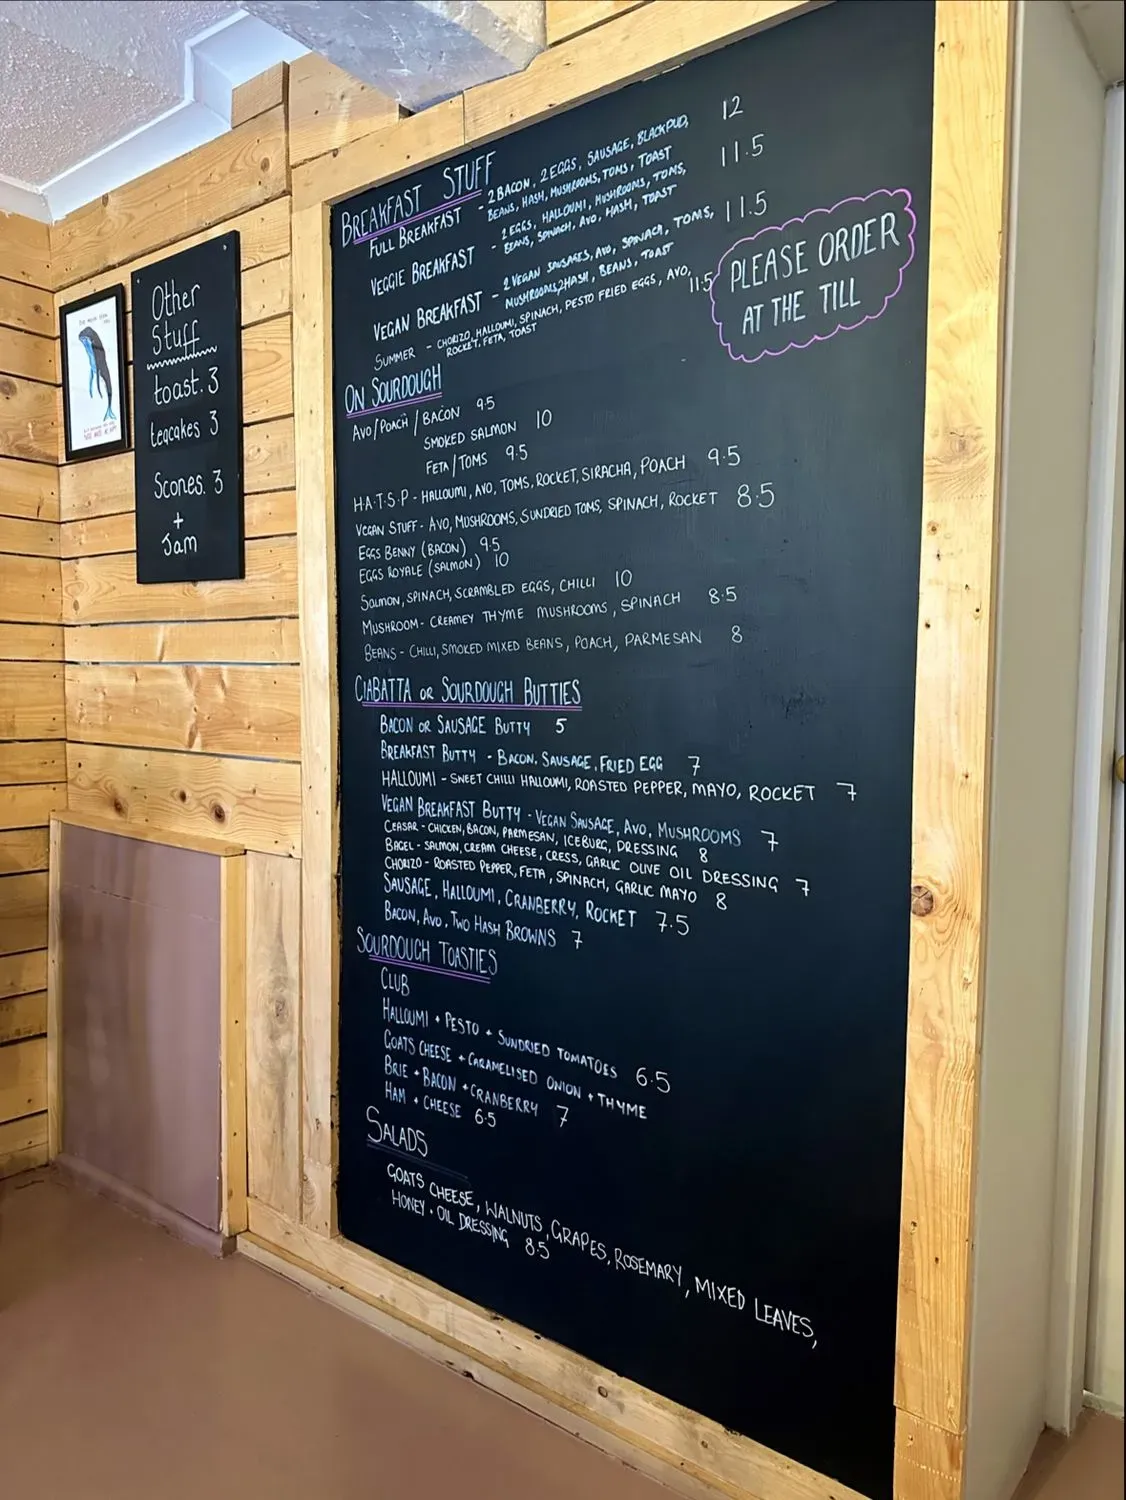 BREAKFAST STUFF
FULL BREAKFAST - 2 BACON, 2 EGGS, SAUSAGE, BLACKPUD, 12
BEANS, HASH, MUSHROOMS, TOMS, TOAST
VEGGIE BREAKFAST - 2 EGGS, HALLOUMI, MUSHROOMS, TOMS, 11.5
BEANS, SPINACH, AVO, HASH, TOAST
VEGAN BREAKFAST - 2 VEGAN SAUSAGES, AVO, SPINACH, TOMS, 11.5
MUSHROOMS, 2HASH, BEANS, TOAST
SUMMER - CHORIZO, HALLOUMI, SPINACH, PESTO FRIED EGGS, AVO, 11.5
ROCKET, FETA, TOAST
PLEASE ORDER
AT THE TILL
ON SOURDOUGH
AVO/POACH / BACON 9.5
SMOKED SALMON 10
FETA/TOMS 9.5
H.A.T.S.P - HALLOUMI, AVO, TOMS, ROCKET, SIRACHA, POACH 9.5
VEGAN STUFF - AVO, MUSHROOMS, SUNDRIED TOMS, SPINACH, ROCKET 8.5
EGGS BENNY (BACON) 9.5
EGGS ROYALE (SALMON) 10
SALMON, SPINACH, SCRAMBLED EGGS, CHILLI 10
MUSHROOM - CREAMEY THYME MUSHROOMS, SPINACH 8.5
BEANS - CHILLI, SMOKED MIXED BEANS, POACH, PARMESAN 8
CIABATTA OR SOURDOUGH BUTTIES
BACON OR SAUSAGE BUTTY 5
BREAKFAST BUTTY - BACON, SAUSAGE, FRIED EGG 7
HALLOUMI - SWEET CHILLI HALLOUMI, ROASTED PEPPER, MAYO, ROCKET 7
VEGAN BREAKFAST BUTTY - VEGAN SAUSAGE, AVO, MUSHROOMS 7
CEASAR - CHICKEN, BACON, PARMESAN, ICEBURG, DRESSING 8
BAGEL - SALMON, CREAM CHEESE, CRESS, GARLIC OLIVE OIL DRESSING 7
CHORIZO - ROASTED PEPPER, FETA, SPINACH, GARLIC MAYO 8
SAUSAGE, HALLOUMI, CRANBERRY, ROCKET 7.5
BACON, AVO, TWO HASH BROWNS 7
SOURDOUGH TOASTIES
CLUB
HALLOUMI + PESTO + SUNDRIED TOMATOES 6.5
GOATS CHEESE + CARAMELISED ONION + THYME
BRIE + BACON + CRANBERRY 7
HAM + CHEESE 6.5
SALADS
GOATS CHEESE, WALNUTS, GRAPES, ROSEMARY, MIXED LEAVES,
HONEY + OIL DRESSING 8.5
Other
Stuff
toast. 3
teacakes 3
Scones. 3
+
Jam